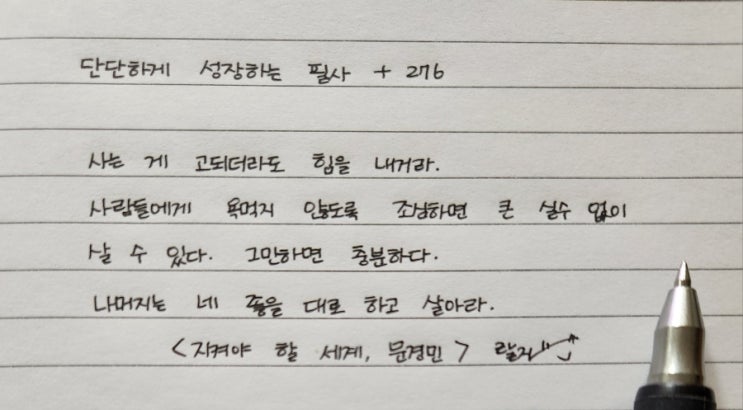 단단하게 성장하는 필사 + 276
사는 게 고되더라도 힘을 내거라.
사람들에게 욕먹지 않도록 조심하면 큰 실수 없이
살 수 있다. 그만하면 충분하다.
나머지는 네 좋을 대로 하고 살아라.
<지켜야 할 세계, 문경민>